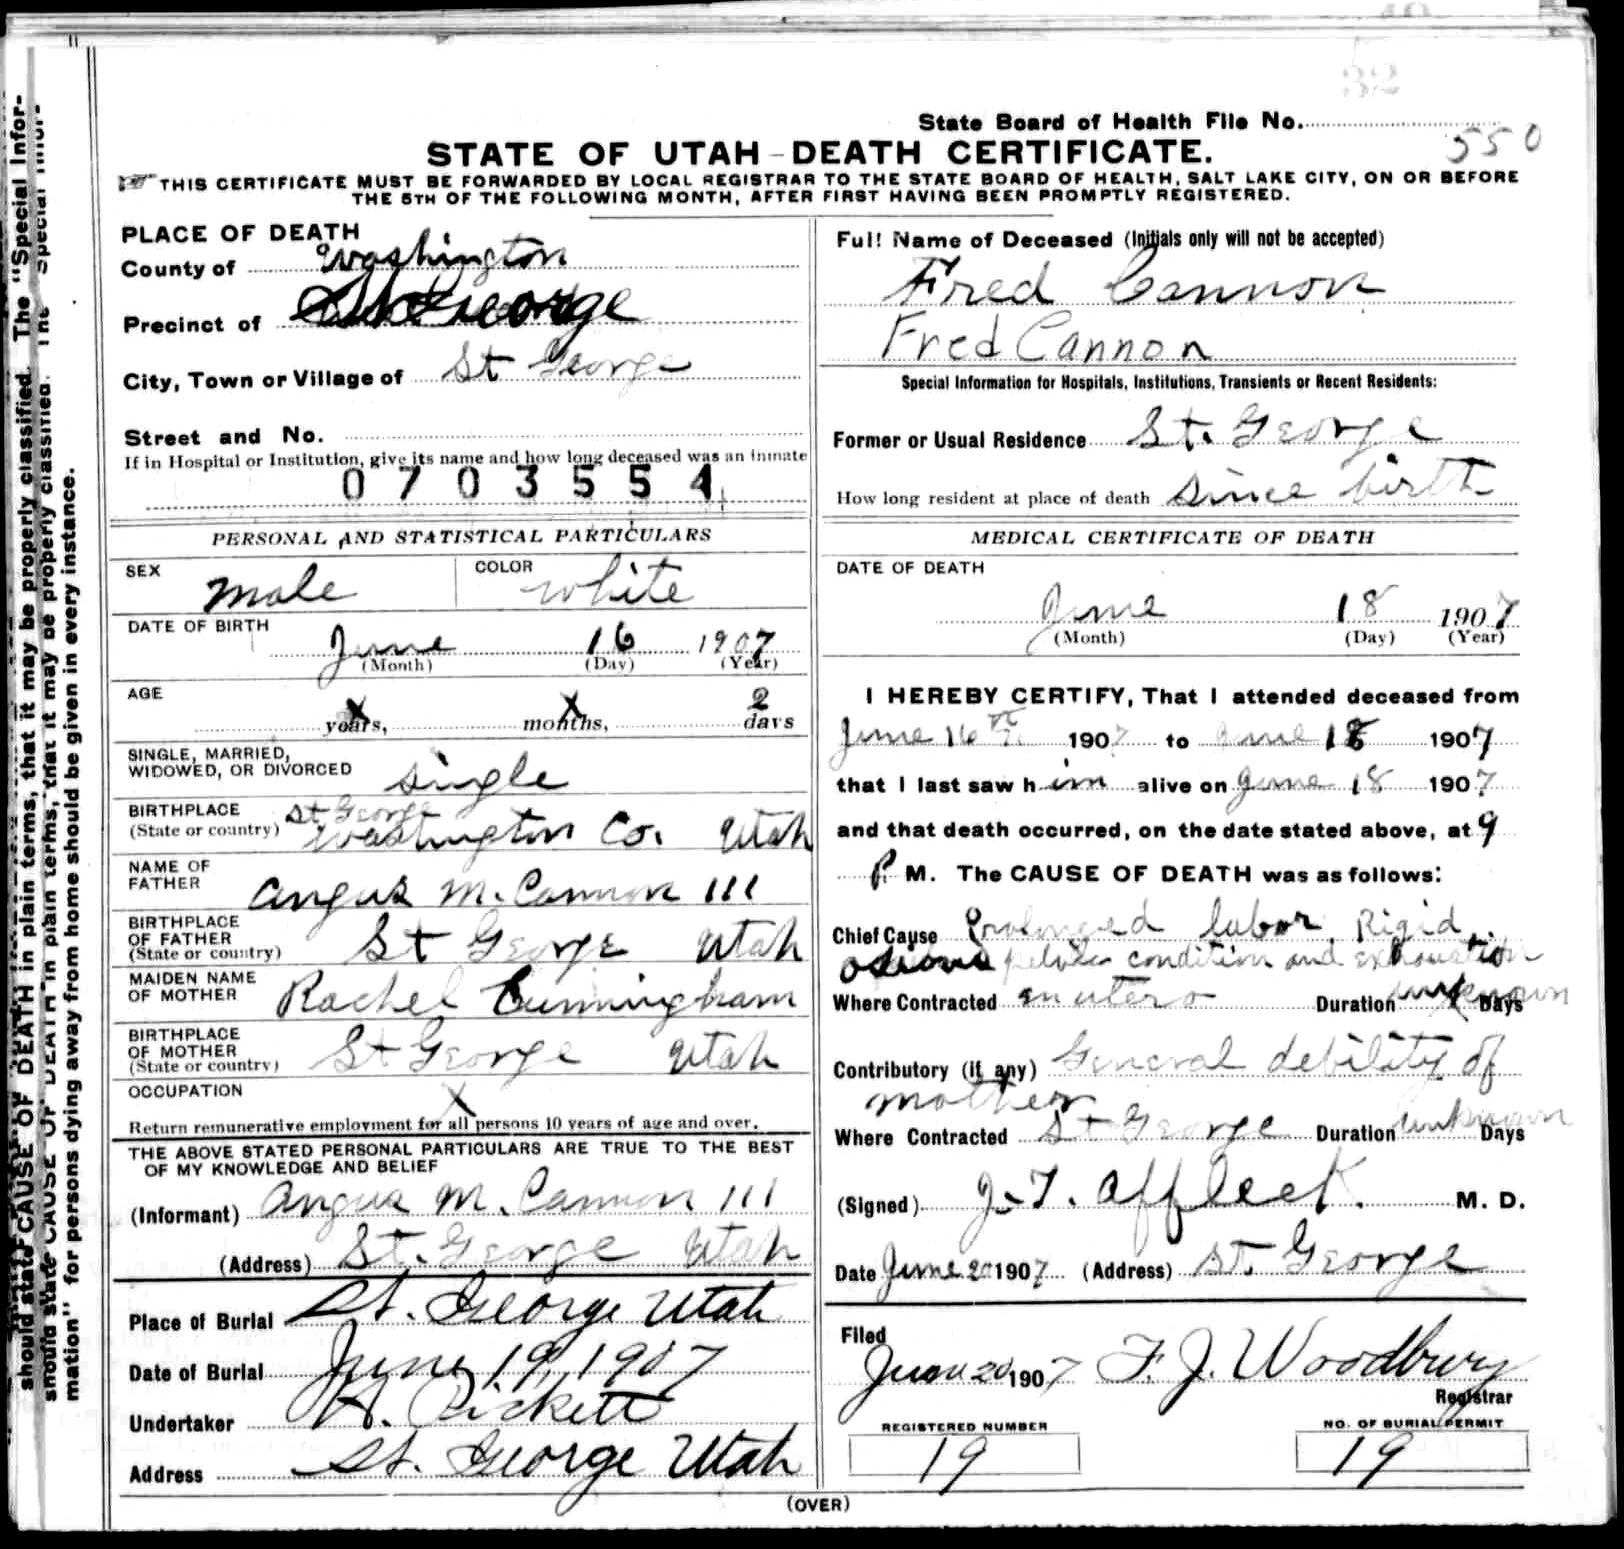 State Board of Health File No.
550
STATE OF UTAH-DEATH CERTIFICATE.
THIS CERTIFICATE MUST BE FORWARDED BY LOCAL REGISTRAR TO THE STATE BOARD OF HEALTH, SALT LAKE CITY, ON OR BEFORE
THE 5TH OF THE FOLLOWING MONTH, AFTER FIRST HAVING BEEN PROMPTLY REGISTERED.
PLACE OF DEATH
County of Washington
Precinct of St George
City, Town or Village of St George
Street and No.
If in Hospital or Institution, give its name and how long deceased was an inmate
0703554
PERSONAL AND STATISTICAL PARTICULARS
SEX male COLOR white
DATE OF BIRTH
June 16 1907
(Month) (Day) (Year)
AGE
x years, x months, 2 days
SINGLE, MARRIED,
WIDOWED, OR DIVORCED single
BIRTHPLACE St George
(State or country) Washington Co. Utah
NAME OF
FATHER Angus M. Cannon III
BIRTHPLACE
OF FATHER St George Utah
(State or country)
MAIDEN NAME
OF MOTHER Rachel Cunningham
BIRTHPLACE
OF MOTHER St George Utah
(State or country)
OCCUPATION X
Return remunerative employment for all persons 10 years of age and over.
THE ABOVE STATED PERSONAL PARTICULARS ARE TRUE TO THE BEST
OF MY KNOWLEDGE AND BELIEF
(Informant) Angus M. Cannon III
(Address) St. George Utah
Place of Burial St. George Utah
Date of Burial June 19, 1907
Undertaker H. Pickett
Address St. George Utah
Full Name of Deceased (Initials only will not be accepted)
Fred Cannon
Fred Cannon
Special Information for Hospitals, Institutions, Transients or Recent Residents:
Former or Usual Residence St. George
How long resident at place of death Since birth
MEDICAL CERTIFICATE OF DEATH
DATE OF DEATH
June 18 1907
(Month) (Day) (Year)
I HEREBY CERTIFY, That I attended deceased from
June 16th 1907 to June 18 1907
that I last saw him alive on June 18 1907
and that death occurred, on the date stated above, at 9
P. M. The CAUSE OF DEATH was as follows:
Chief Cause Prolonged labor, Rigid
pelvic condition and exhaustion
Where Contracted in utero Duration unknown Days
Contributory (if any) General debility of
mother
Where Contracted St George Duration unknown Days
(Signed) J. T. Affleck. M. D.
Date June 20 1907 (Address) St. George
Filed
June 20 1907 F. J. Woodbury
Registrar
REGISTERED NUMBER
19
NO. OF BURIAL PERMIT
19
(OVER)
should state CAUSE OF DEATH in plain terms, that it may be properly classified. The "Special Infor-
should state CAUSE OF DEATH in plain terms, that it may be properly classified. The "Special Infor-
mation" for persons dying away from home should be given in every instance.